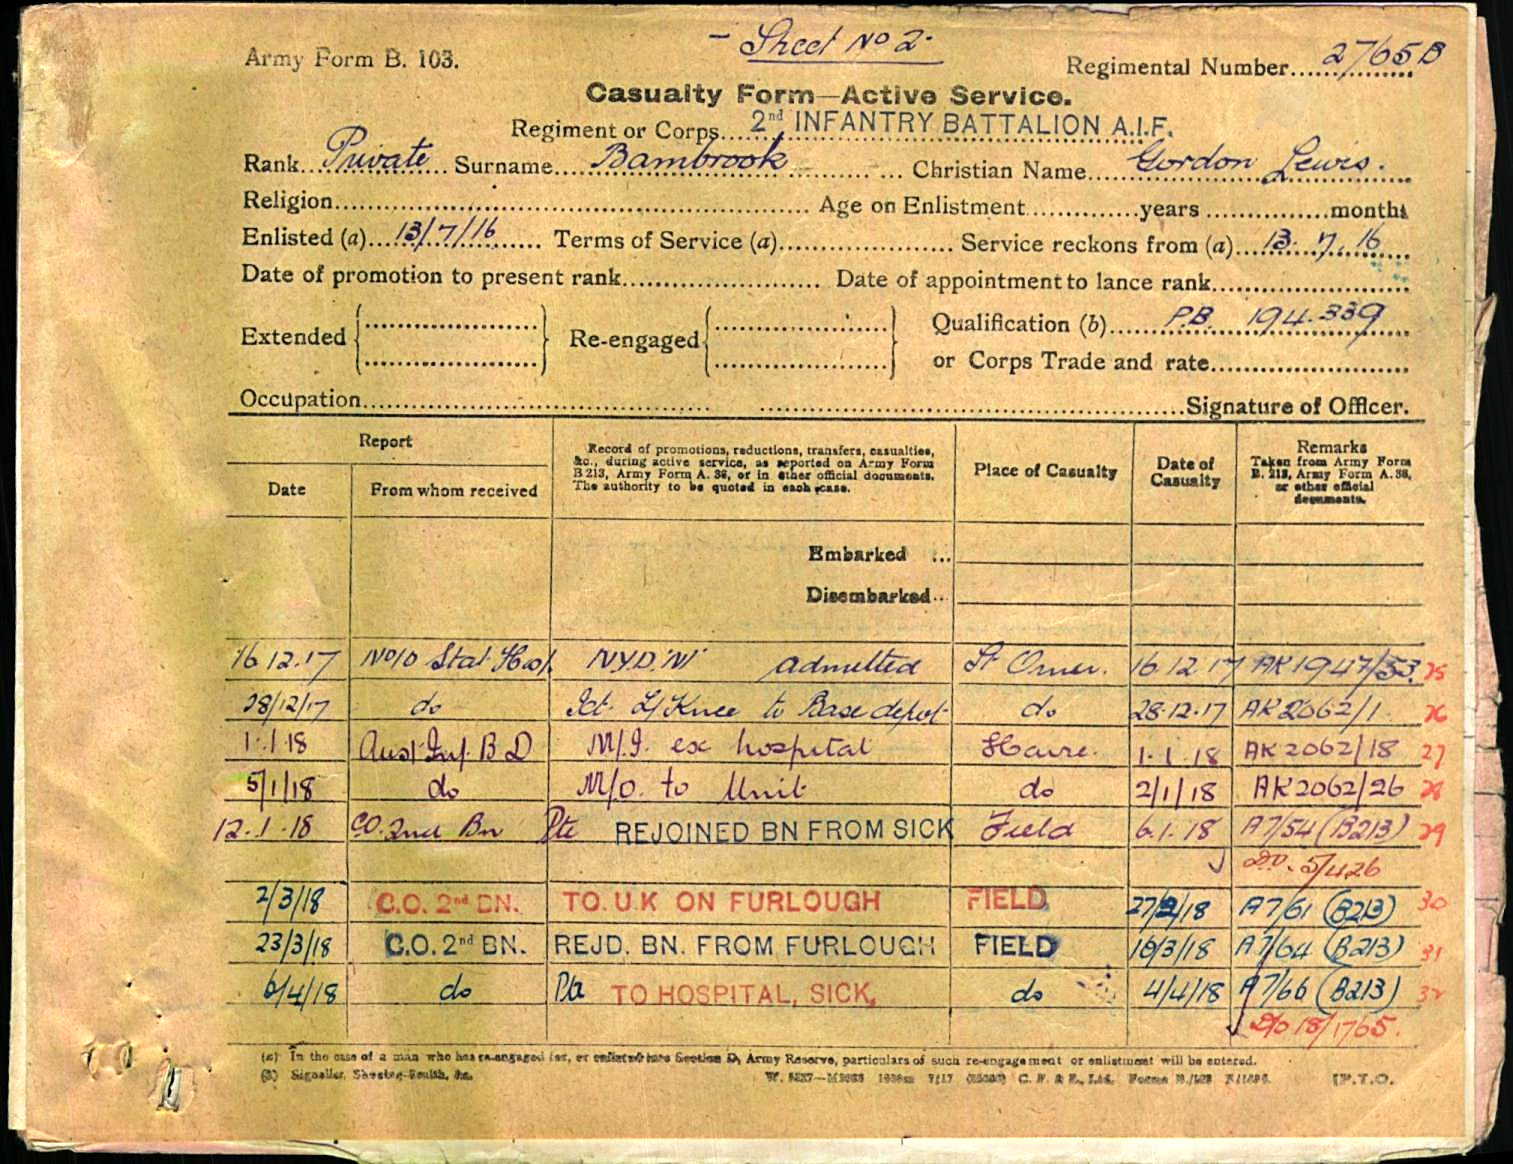 - Sheet No 2 -
Army Form B. 103.
Regimental Number 2765B
Casualty Form—Active Service.
Regiment or Corps 2nd INFANTRY BATTALION A.I.F.
Rank Private Surname Bambrook Christian Name Gordon Lewis.
Religion Age on Enlistment years months
Enlisted (a) 13/7/16 Terms of Service (a) Service reckons from (a) 13.7.16
Date of promotion to present rank Date of appointment to lance rank
Extended Re-engaged Qualification (b) P.B. 194.339
or Corps Trade and rate
Occupation Signature of Officer.
Report
Date From whom received
Record of promotions, reductions, transfers, casualties,
&c., during active service, as reported on Army Form
B 213, Army Form A. 36, or in other official documents.
The authority to be quoted in each case.
Place of Casualty
Date of
Casualty
Remarks
Taken from Army Form
B. 213, Army Form A. 36,
or other official
documents.
Embarked ...
Disembarked ...
16.12.17 No10 Stat Hosp. NYD'N' admitted St Omer. 16 12 17 AK1947/53 25
28/12/17 do L/Knee to Base depot do 28.12.17 AK2062/1 26
1.1.18 Aust Inf. B D M/I. ex hospital Havre. 1.1.18 AK2062/18 27
5/1/18 do M/O. to Unit do 2/1/18 AK2062/26 28
12.1.18 CO. 2nd Bn Pte REJOINED BN FROM SICK Field 6.1.18 A7/54 (B213) 29
DO. 5/426
2/3/18 C.O. 2nd BN. TO U.K ON FURLOUGH FIELD 27/2/18 A7/61 (B213) 30
23/3/18 C.O. 2nd BN. REJD. BN. FROM FURLOUGH FIELD 16/3/18 A7/64 (B213) 31
6/4/18 do Pte TO HOSPITAL, SICK, do 4/4/18 A7/66 (B213) 32
DO 18/1765.
(a) In the case of a man who has re-engaged for, or enlisted into Section D, Army Reserve, particulars of such re-engagement or enlistment will be entered.
(b) Signaller, Shoeing-Smith, &c.
C. F. & E., Ltd. [P.T.O.